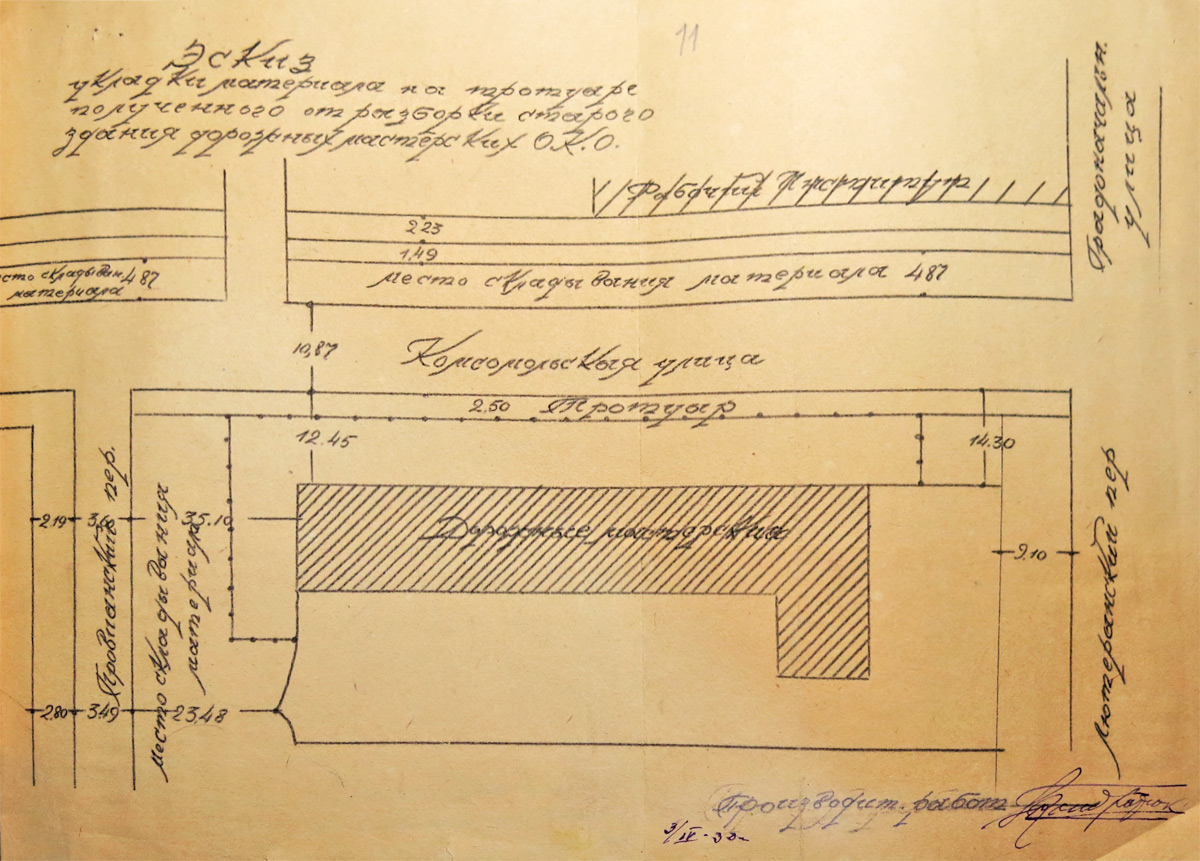 11
Эскиз
укладки материала на тротуаре
полученного от разборки старого
здания дорожных мастерских О.К.О.
Градоначальн.
улица
2.23
1.49
место складывания материала 4.87
сто складыван. 4.87
материала
10,87
Комсомольская улица
2.50 Тротуар
12.45
14.30
2.19
3,6
35.10
Дорожные мастерския
9.10
Провианский пер.
место складывания
материала
Лютеранский пер
2.80
3.49
23.48
Производит. работ
3/IV-32